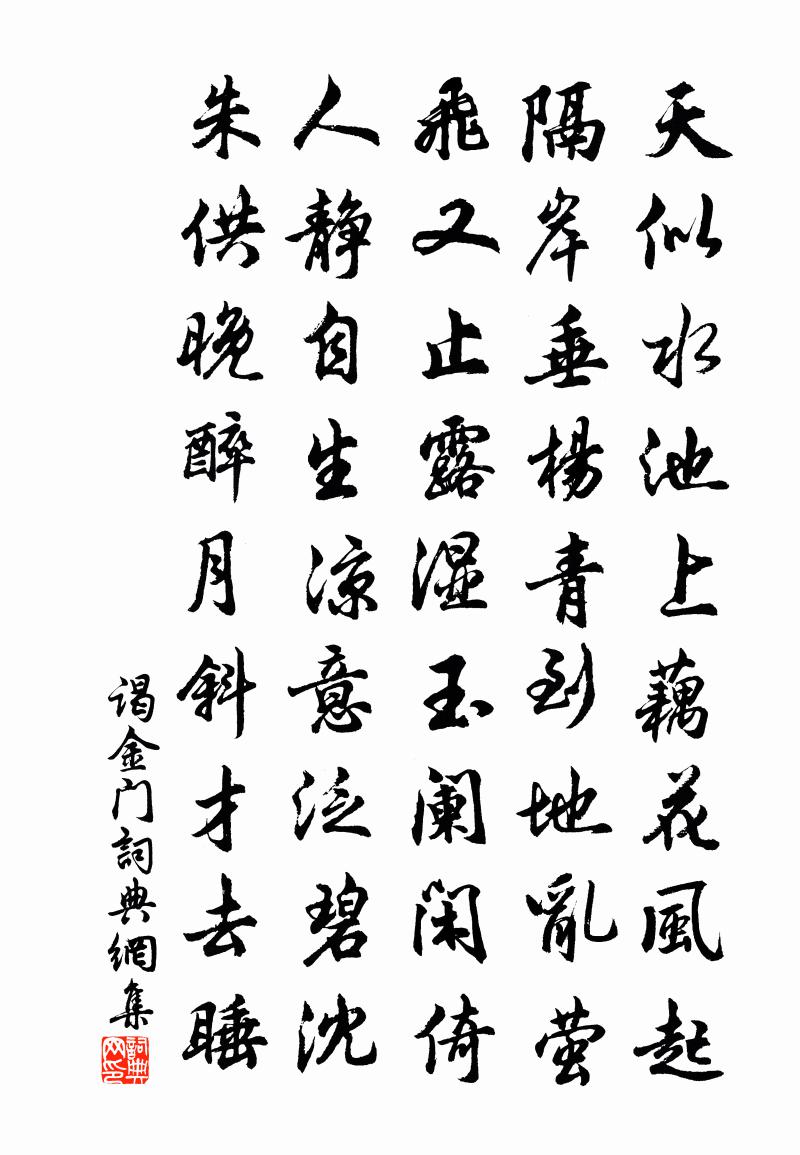 天似水池上藕花風起
隔岸垂楊青到地亂萤
飛又止露湿玉阑闲倚
人静自生凉意泛碧沈
朱供晚醉月斜才去睡
谒金门詞典網集
詞典网印